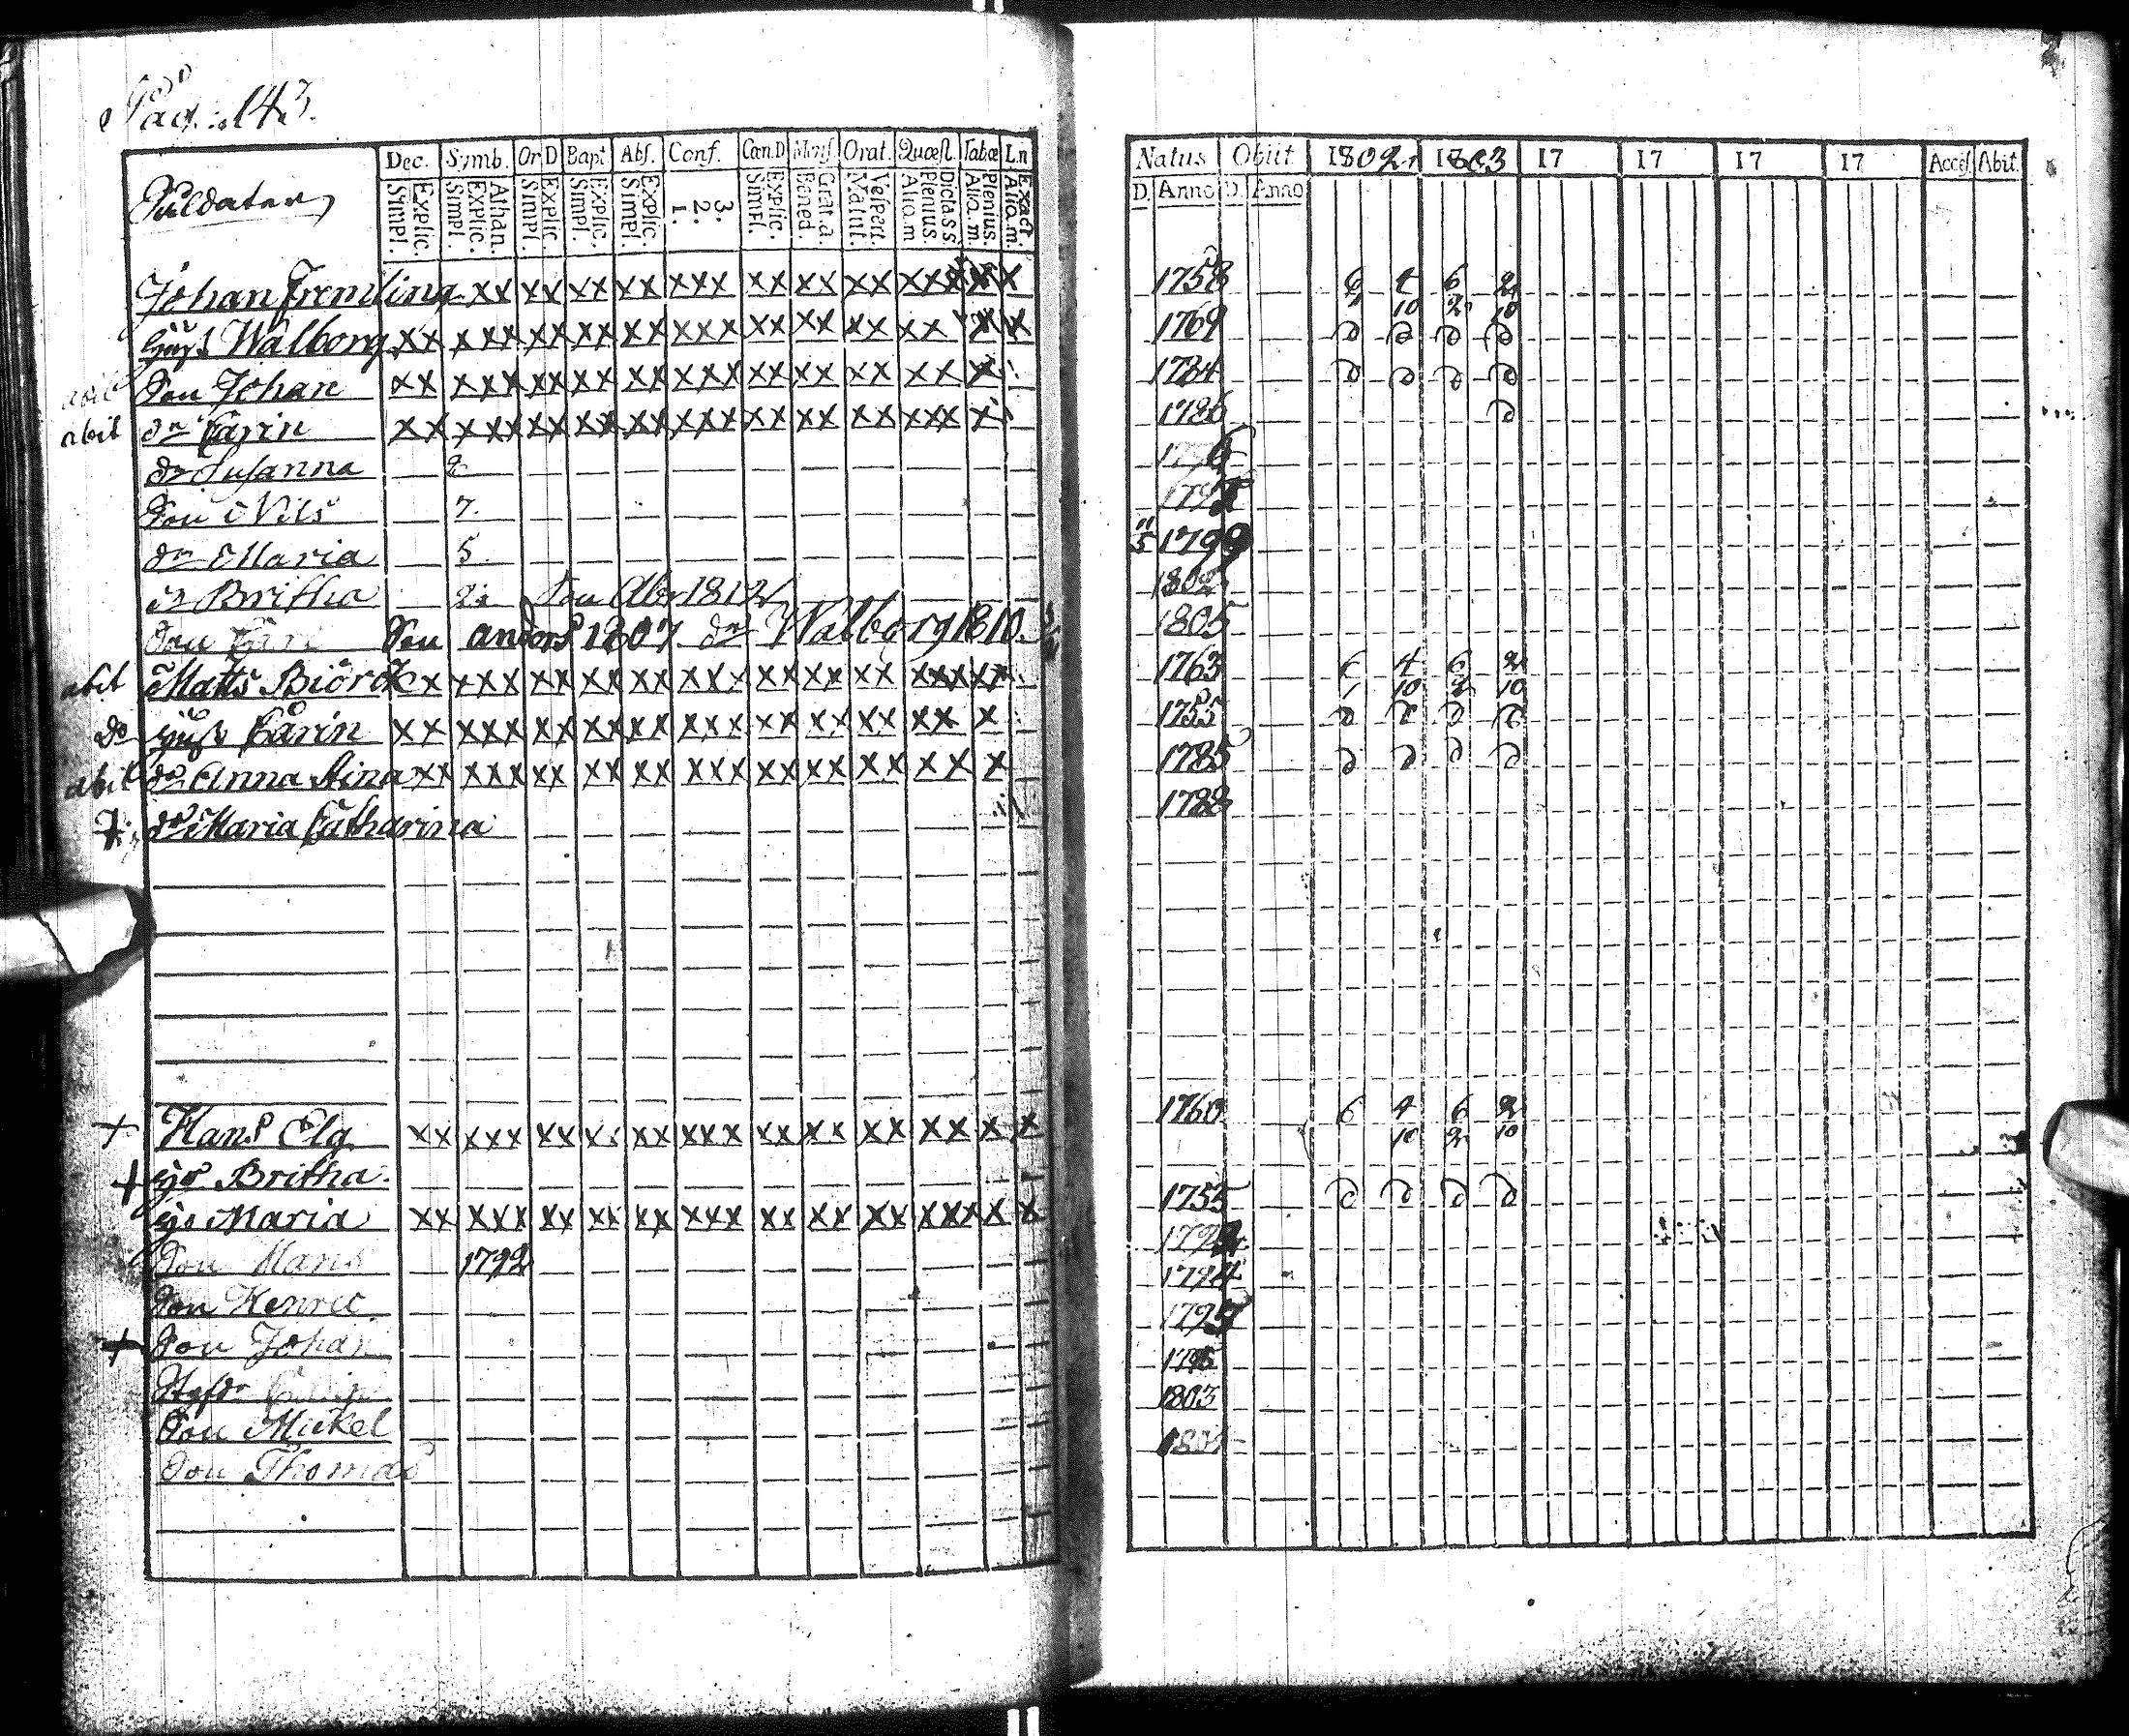 Pag: 143.
Dec. Symb. Or D Bapt Abs. Conf. Cœn.D Mens. Orat. Quæst. Tabœ L.n
Soldater
Simpl. Explic. Simpl. Explic. Athan. Simpl. Explic. Simpl. Explic. Simpl. Explic. 1. 2. 3. Simpl. Explic. Bened. Grat.a. Matut. Vespert. Aliq.m Plenius. Dictass. Aliq.m. Plenius. Aliq.m. Exact.
Johan Fremling xx xx xx xx xxx xx xx xx xxx xx x
Hust Walborg xx xxx xx xx xx xxx xx xx xx xx x x
abit Son Johan xx xxx xx xx xx xxx xx xx xx xx x
abit dr Carin xx xxx xx xx xx xxx xx xx xx xxx x
dr Susanna 2
Son Nils 7.
dr Maria 5.
dr Britha Son Abr 1812
Son Son anders 1807 dr Walborg 1810
abit Matts Biörck xx xxx xx xx xx xxx xx xx xx xxx xx
do hust Carin xx xxx xx xx xx xxx xx xx xx xx x
abit dr Anna Stina xx xxx xx xx xx xxx xx xx xx xx x
dr Maria Catharina
+ Hans Elg xx xxx xx xx xx xxx xx xx xx xx x x
+ hu Britha
hu Maria xx xxx xx xx xx xxx xx xx xx xxx x x
Son Hans 1792
Son Henric
+ Son Johan
Styfdr Carin
Son Mickel
Son Thomas
Natus Obiit 1802 1803 17 17 17 17 Acces. Abit.
D. Anno D. Anno
1758 6 4 6 2
10 2 10
1769
1784
1786
1796
5 1799
1802
1805
1763 6 4 6 2
1 10 2 10
1755
1785
1788
1760 6 4 6 2
10 2 10
1755
1792
1794
1795
1803